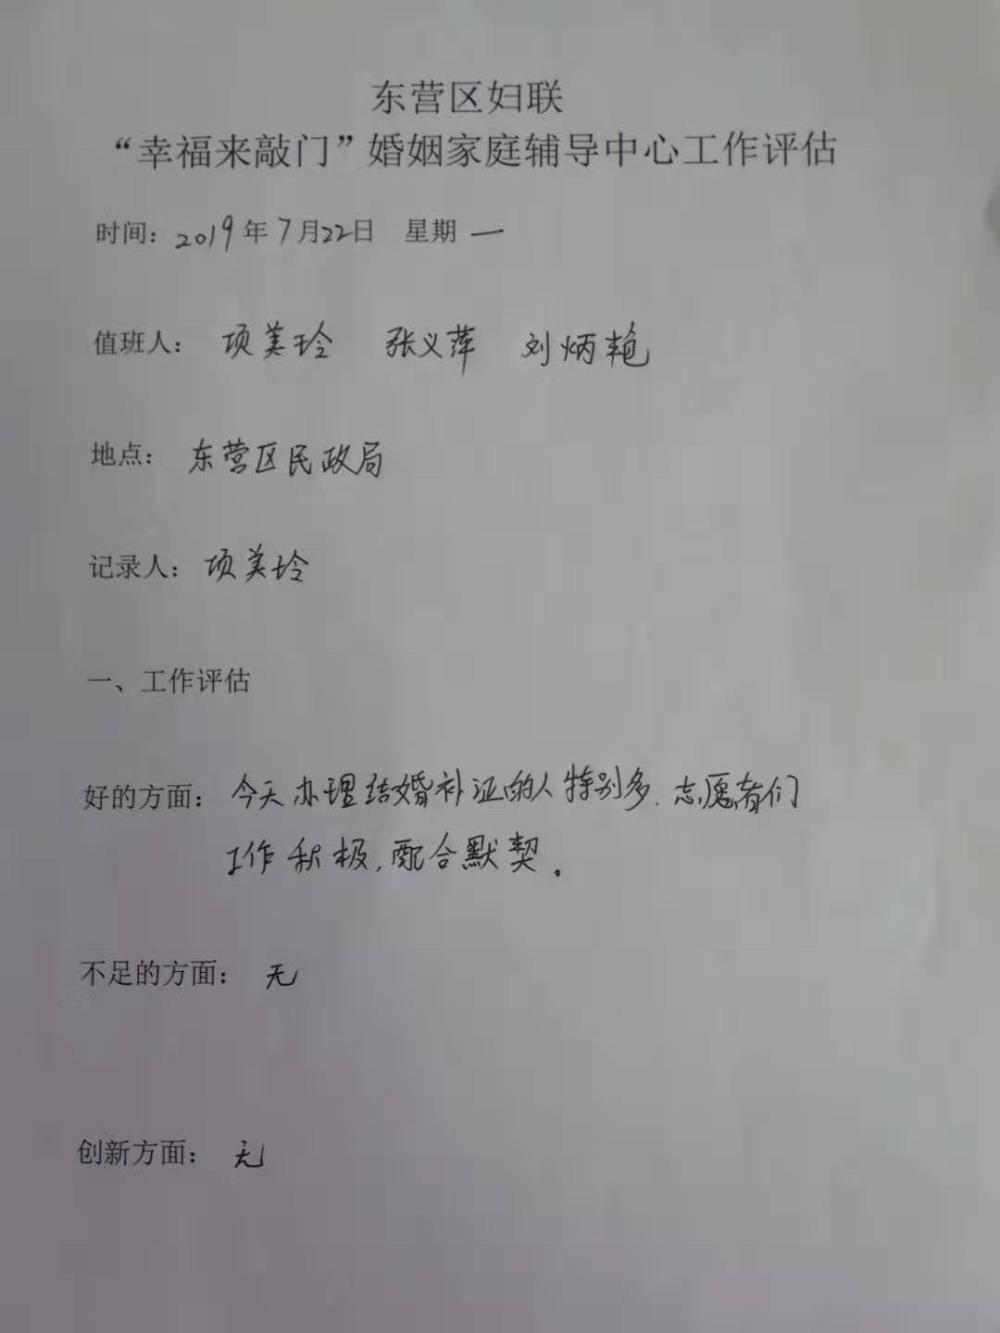 东营区妇联
“幸福来敲门”婚姻家庭辅导中心工作评估
时间：2019年7月22日 星期一
值班人： 项美玲 张义萍 刘炳艳
地点： 东营区民政局
记录人：项美玲
一、工作评估
好的方面：今天办理结婚补证的人特别多，志愿者们
工作积极，配合默契。
不足的方面： 无
创新方面： 无